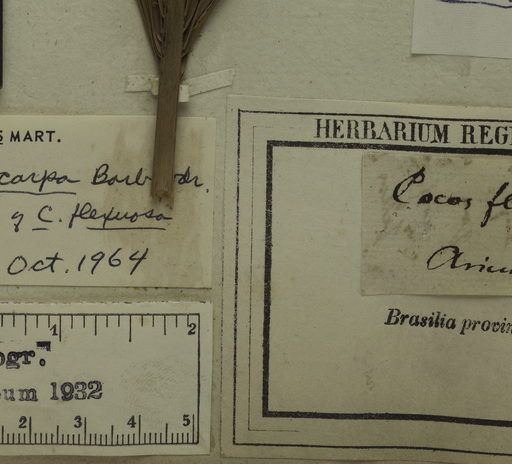 S MART.
carpa Barb. Rodr.
y C. flexuosa
Oct. 1964
1 2
ogr.
um 1932
2 3 4 5
HERBARIUM REG
Cocos fl
Brasilia provin